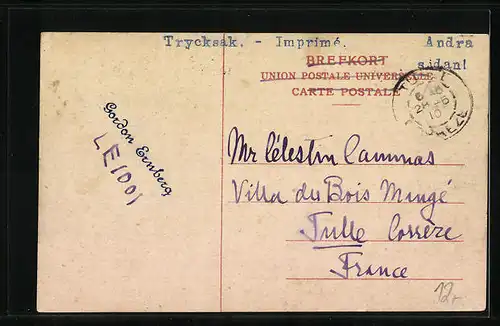 Trycksak. - Imprimé. Andra sidan!
BREFKORT
UNION POSTALE UNIVERSELLE
CARTE POSTALE
Gordon Ernberg
LE(00)
Mr Célestin
Villa du Bois Mangé
Tulle Corrèze
France
12,-